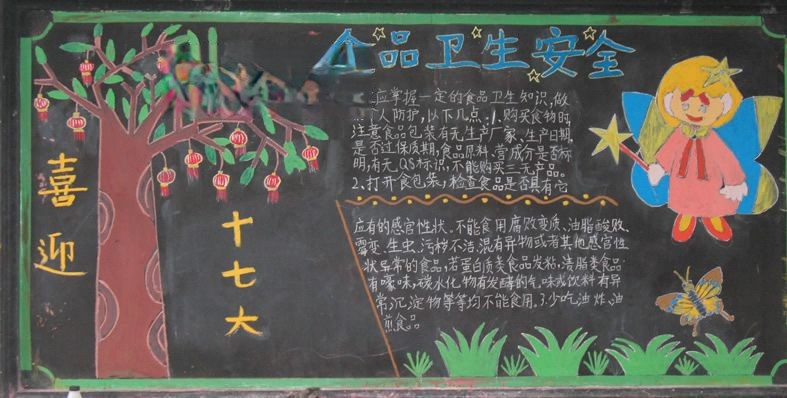 食品卫生安全
喜迎
十七大
应掌握一定的食品卫生知识,做
个人防护,以下几点:1、购买食物时
注意食品包装有无生产厂家、生产日期,
是否过保质期,食品原料、营成分是否标
明,有无QS标识,不能购买三无产品。
2、打开食包装,检查食品是否具有它
应有的感官性状。不能食用腐败变质、油脂酸败、
霉变、生虫、污秽不洁、混有异物或者其他感官性
状异常的食品,若蛋白质类食品发粘,渍脂类食品
有嚎味,碳水化物有发酵的气味或饮料有异
常沉淀物等等均不能食用。3.少吃油炸、油
煎食品